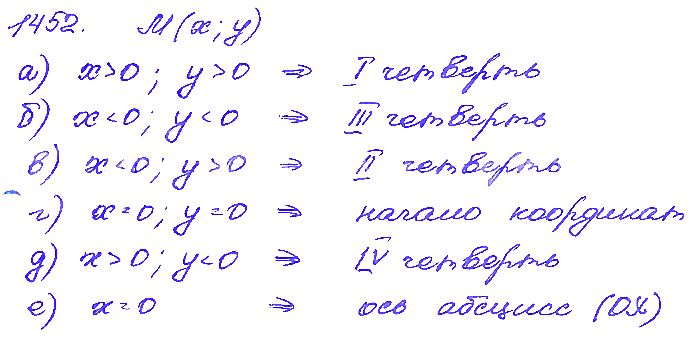 1452. М(x; y)
а) x>0; y>0 ⇒ I четверть
б) x<0; y<0 ⇒ III четверть
в) x<0; y>0 ⇒ II четверть
г) x=0; y=0 ⇒ начало координат
д) x>0; y<0 ⇒ IV четверть
е) x=0 ⇒ ось абсцисс (OX)